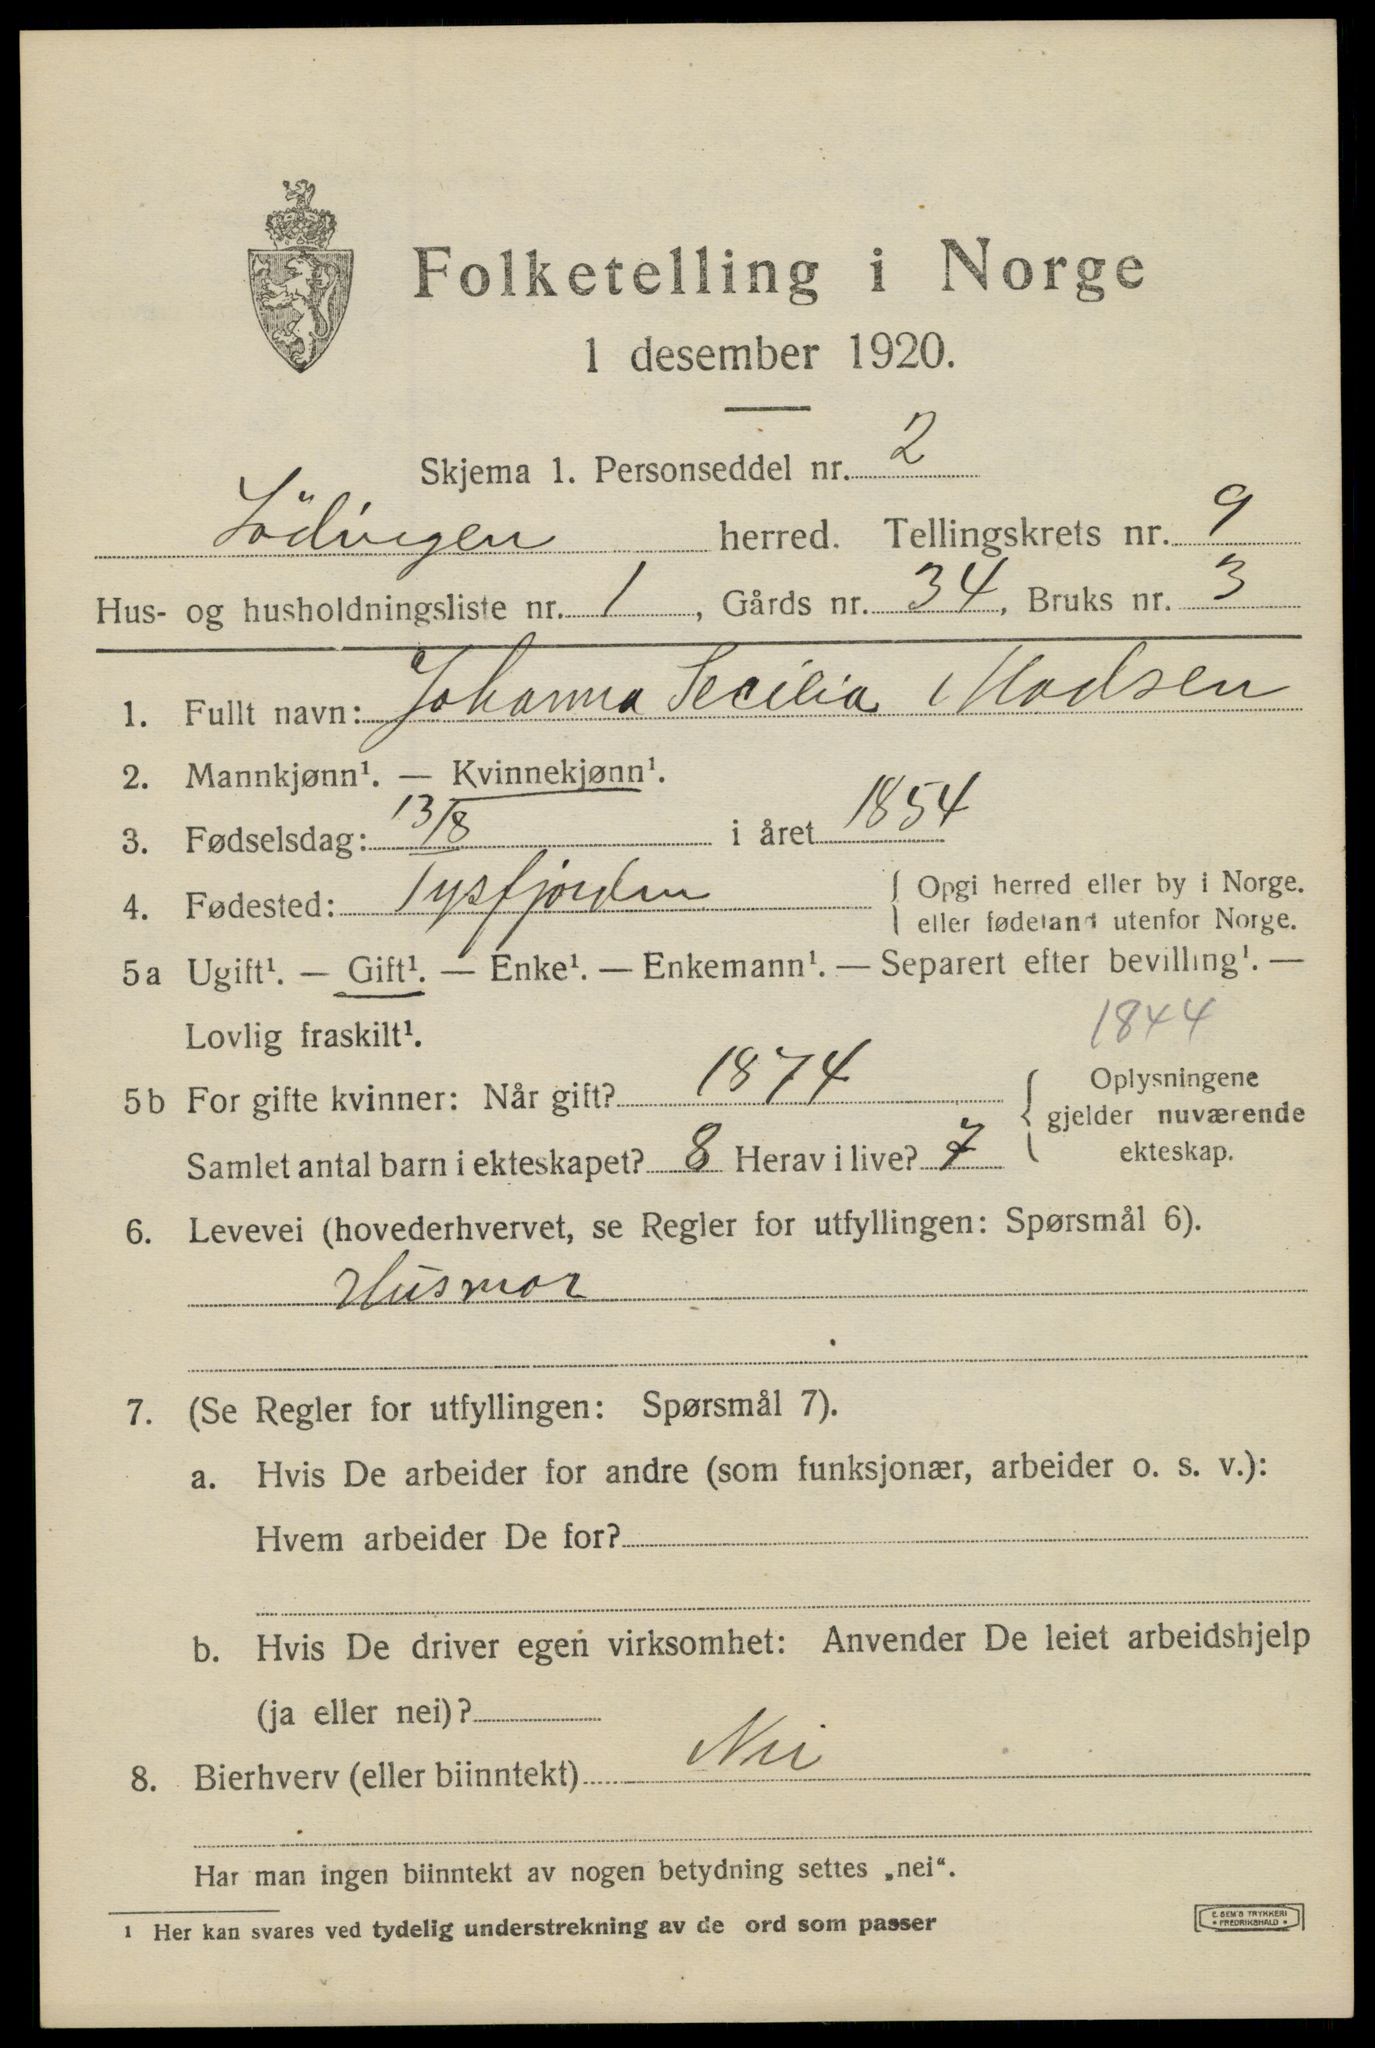 Folketelling i Norge
1 desember 1920.
Skjema 1. Personseddel nr. 2
Lödingen herred. Tellingskrets nr. 9
Hus- og husholdningsliste nr. 1, Gårds nr. 34, Bruks nr. 3
1. Fullt navn: Johanna Secilia Madsen
2. Mannkjønn¹. — Kvinnekjønn¹.
3. Fødselsdag: 13/8 i året 1854
4. Fødested: Tysfjorden { Opgi herred eller by i Norge.
eller fødeland utenfor Norge.
5a Ugift¹. — Gift¹. — Enke¹. — Enkemann¹. — Separert efter bevilling¹. —
Lovlig fraskilt¹.
1844
5b For gifte kvinner: Når gift? 1874 { Oplysningene
gjelder nuværende
Samlet antal barn i ekteskapet? 8 Herav i live? 7 ekteskap.
6. Levevei (hovederhvervet, se Regler for utfyllingen: Spørsmål 6).
Husmor
7. (Se Regler for utfyllingen: Spørsmål 7).
a. Hvis De arbeider for andre (som funksjonær, arbeider o. s. v.):
Hvem arbeider De for?
b. Hvis De driver egen virksomhet: Anvender De leiet arbeidshjelp
(ja eller nei)?
8. Bierhverv (eller biinntekt) Nei
Har man ingen biinntekt av nogen betydning settes „nei“.
1 Her kan svares ved tydelig understrekning av de ord som passer
E. SEM'S TRYKKERI
• FREDRIKSHALD •